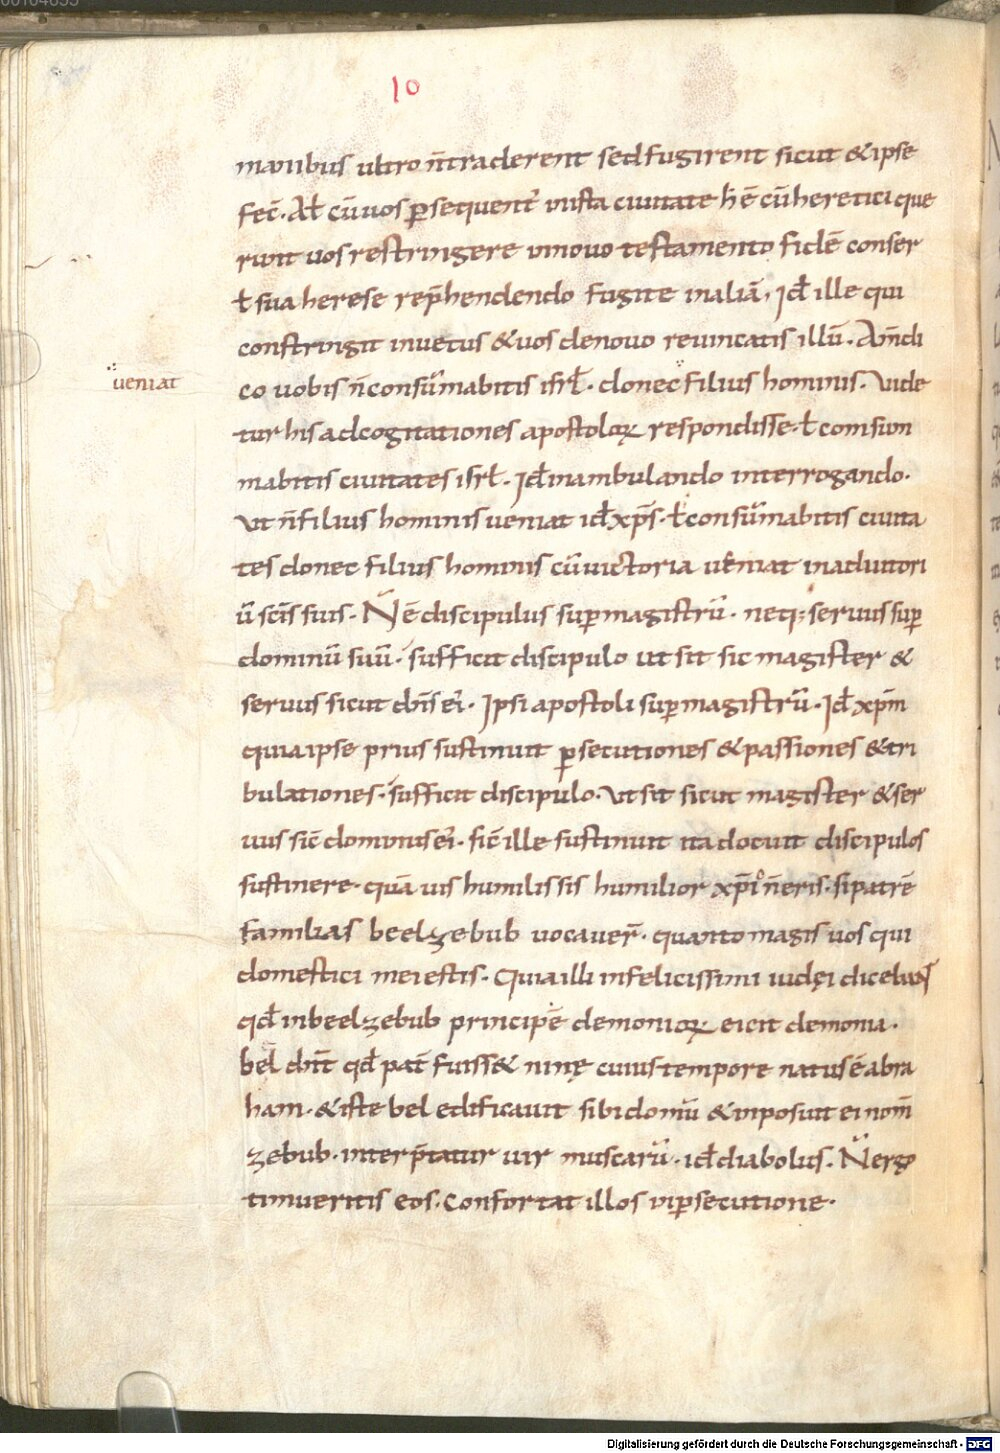 10
manibus ultro n̄ traderent sed fugirent sicut & ipse
fec̄. Al̄ cū uos p̱sequent̄ in ista ciuitate h̄ ē cū heretici que
runt uos restringere in nouo testamento fidē conser
ł sua herese rep̄hendendo fugite in aliā, Id̄ ille qui
constringit in uetus & uos de nouo reuincatis illū. Am̄ di
co uobis n̄ consūmabitis isrł. donec filius hominis. Vide
ueniat
tur his ad cogitationes apostoloꝝ respondisse. ł con sum
mabitis ciuitates isrł. Id̄ in ambulando interrogando.
Vt n̄ filius hominis ueniat id̄ xp̄s. ł consūmabitis ciuita
tes donec filius hominis cū uictoria ueniat in adiutori
ū sc̄is suis. N̄ ē discipulus sup̱ magistrū. neq; seruus sup̱
dominū suū. sufficit discipulo ut sit sic magister &
seruus sicut dn̄s ei. Ipsi apostoli sup̱ magistrū. Id̄ xp̄m
quia ipse prius sustinuit p̱secutiones & passiones & tri
bulationes. sufficit discipulo. Vt sit sicut magister & ser
uus sic̄ dominus ei. sic̄ ille sustinuit ita docuit discipulos
sustinere. quā uis humilis sis humilior xp̄i n̄ eris. si patrē
familias beelzebub uocauer̄. quanto magis uos qui
domestici mei estis. Quia illi infelicissimi iudęi dicebant
qd̄ in beelzebub principē demonioꝝ eicit demonia.
bel dn̄t qd̄ pat̄ fuiss& ninę cuius tempore natus ē abra
ham. & iste bel edificauit sibi domū & inposuit ei nom̄
zebub. interp̄tatur uir muscarū. id̄ diabolus. N̄ ergo
timueritis eos. Confortat illos in p̱secutione.
Digitalisierung gefördert durch die Deutsche Forschungsgemeinschaft - DFG